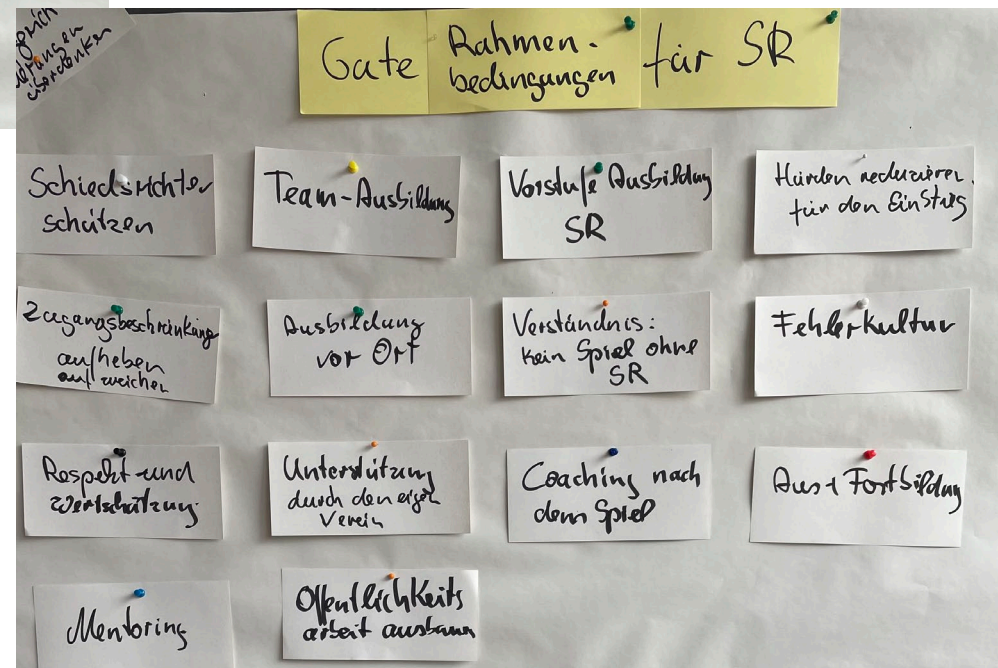 überdenken
Gute Rahmen-
bedingungen für SR
Schiedsrichter
schützen
Team-Ausbildung
Vorstufe Ausbildung
SR
Hürden reduzieren
für den Einstieg
Zugangsbeschränkung
aufheben
aufweichen
Ausbildung
vor Ort
Verständnis:
kein Spiel ohne
SR
Fehlerkultur
Respekt und
Wertschätzung
Unterstützung
durch den eigen
Verein
Coaching nach
dem Spiel
Aus + Fortbildung
Mentoring
Öffentlichkeits
arbeit ausbauen